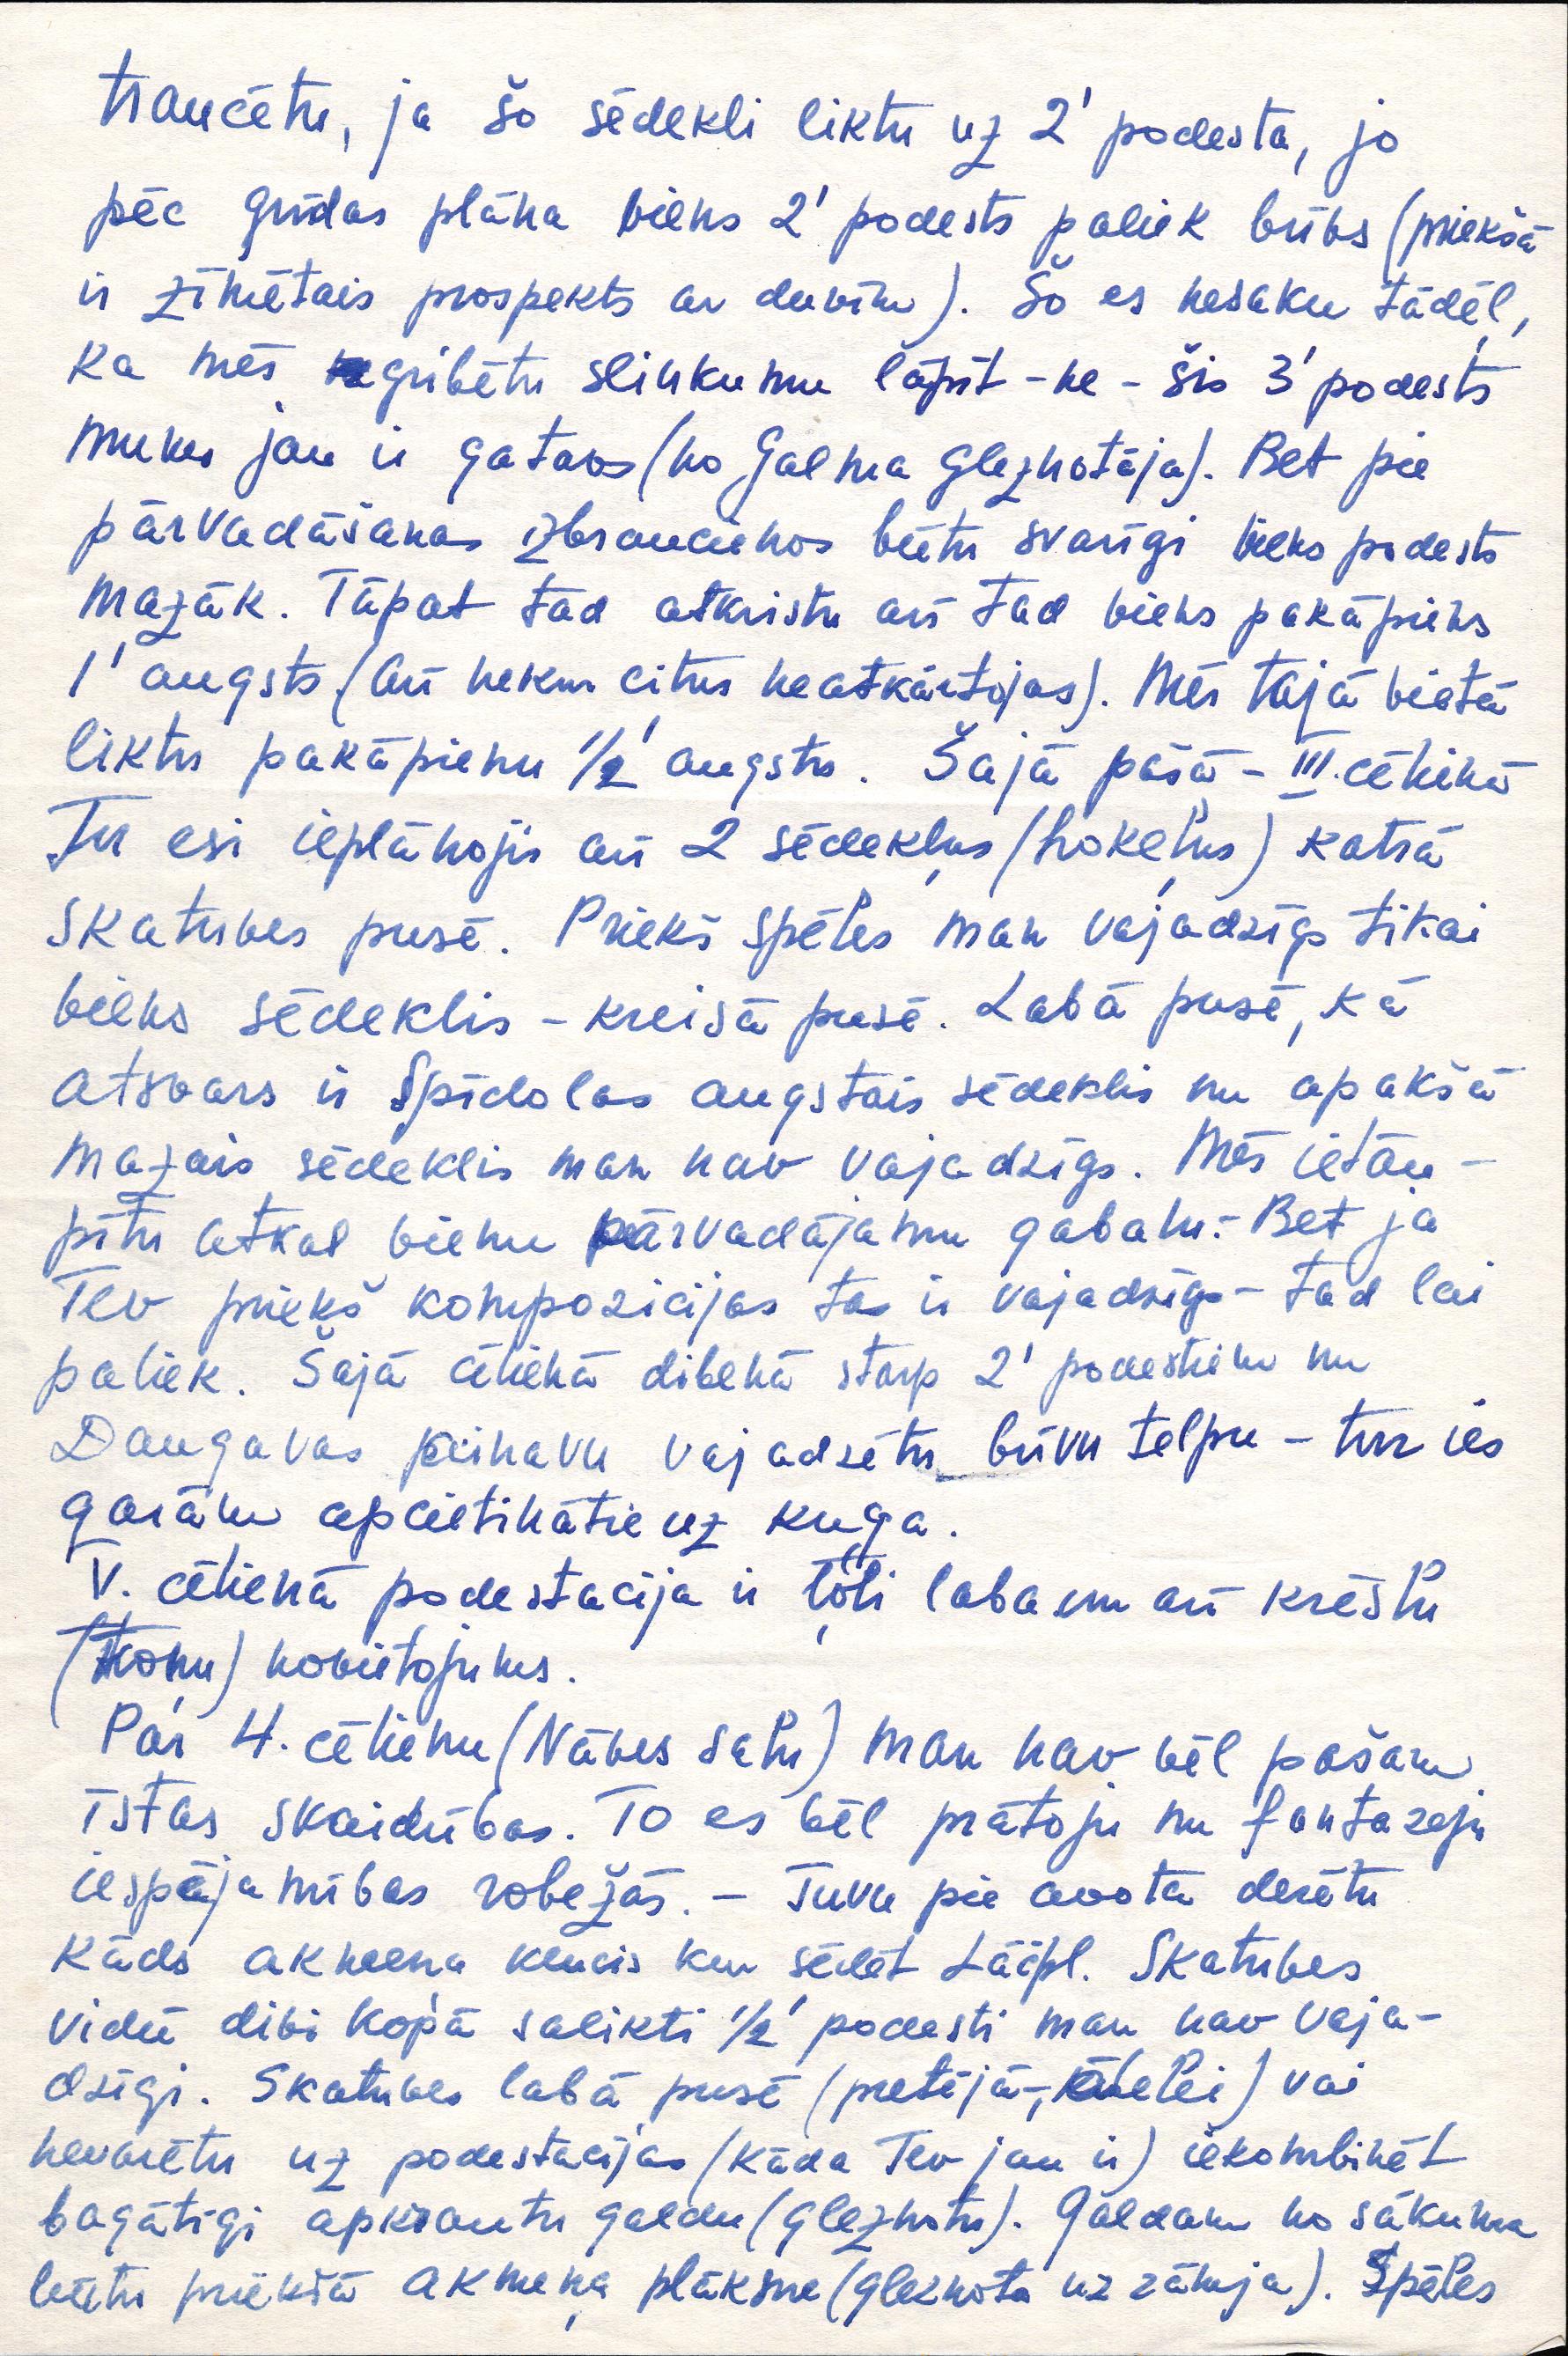 traucētu, ja šo sēdekli liktu uz 2' podesta, jo
pēc grīdas plāna viens 2' podests paliek brīvs (priekšā
ir zīmētais prospekts ar durvīm). Šo es nesaku tādēļ,
ka mēs gribētu slinkumu lāpīt - ne - šis 3' podests
mums jau ir gatavs (no Galma gleznotāja). Bet pie
pārvadāšanas izbraucienos būtu svarīgi viens podests
mazāk. Tāpat tad atkristu arī tad viens pakāpiens
1' augsts (arī nekur citur neatkārtojas). Mēs tajā vietā
liktu pakāpienu 1/2' augstu. Šajā pašā - III. cēlienā
Tu esi ieplānojis arī 2 sēdekļus (hokeļus) katrā
skatuves pusē. Priekš spēles man vajadzīgs tikai
viens sēdeklis - kreisā pusē. Labā pusē, kā
atsvars ir Spīdolas augstais sēdeklis un apakšā
mazais sēdeklis man nav vajadzīgs. Mēs ietau-
pītu atkal vienu pārvadājamu gabalu. - Bet ja
Tev priekš kompozicijas tas ir vajadzīgs - tad lai
paliek. Šajā cēlienā dibenā starp 2' podestiem un
Daugavas ainavu vajadzētu brīvu telpu - tur ies
garām apcietinātie uz kuģa.
V. cēlienā podestacija ir ļoti laba un arī krēslu
(troņu) novietojums.
Par 4. cēlienu (Nāves salu) man nav vēl pašam
īstas skaidrības. To es vēl prātoju un fantazeju
iespējamības robežās. - Tuvu pie avota derētu
kāds akmeņa klucis kur sēdēt Lāčpl. Skatuves
vidū divi kopā salikti 1/2' podesti man nav vaja-
dzīgi. Skatuves labā pusē (pretējā, ) vai
nevarētu uz podestacijas (kāda Tev jau ir) iekombinēt
bagātīgi apkrautu galdu (gleznotu). Galdam no sākuma
būtu priekšā akmeņa plāksne (gleznota uz zāmja). Spēles